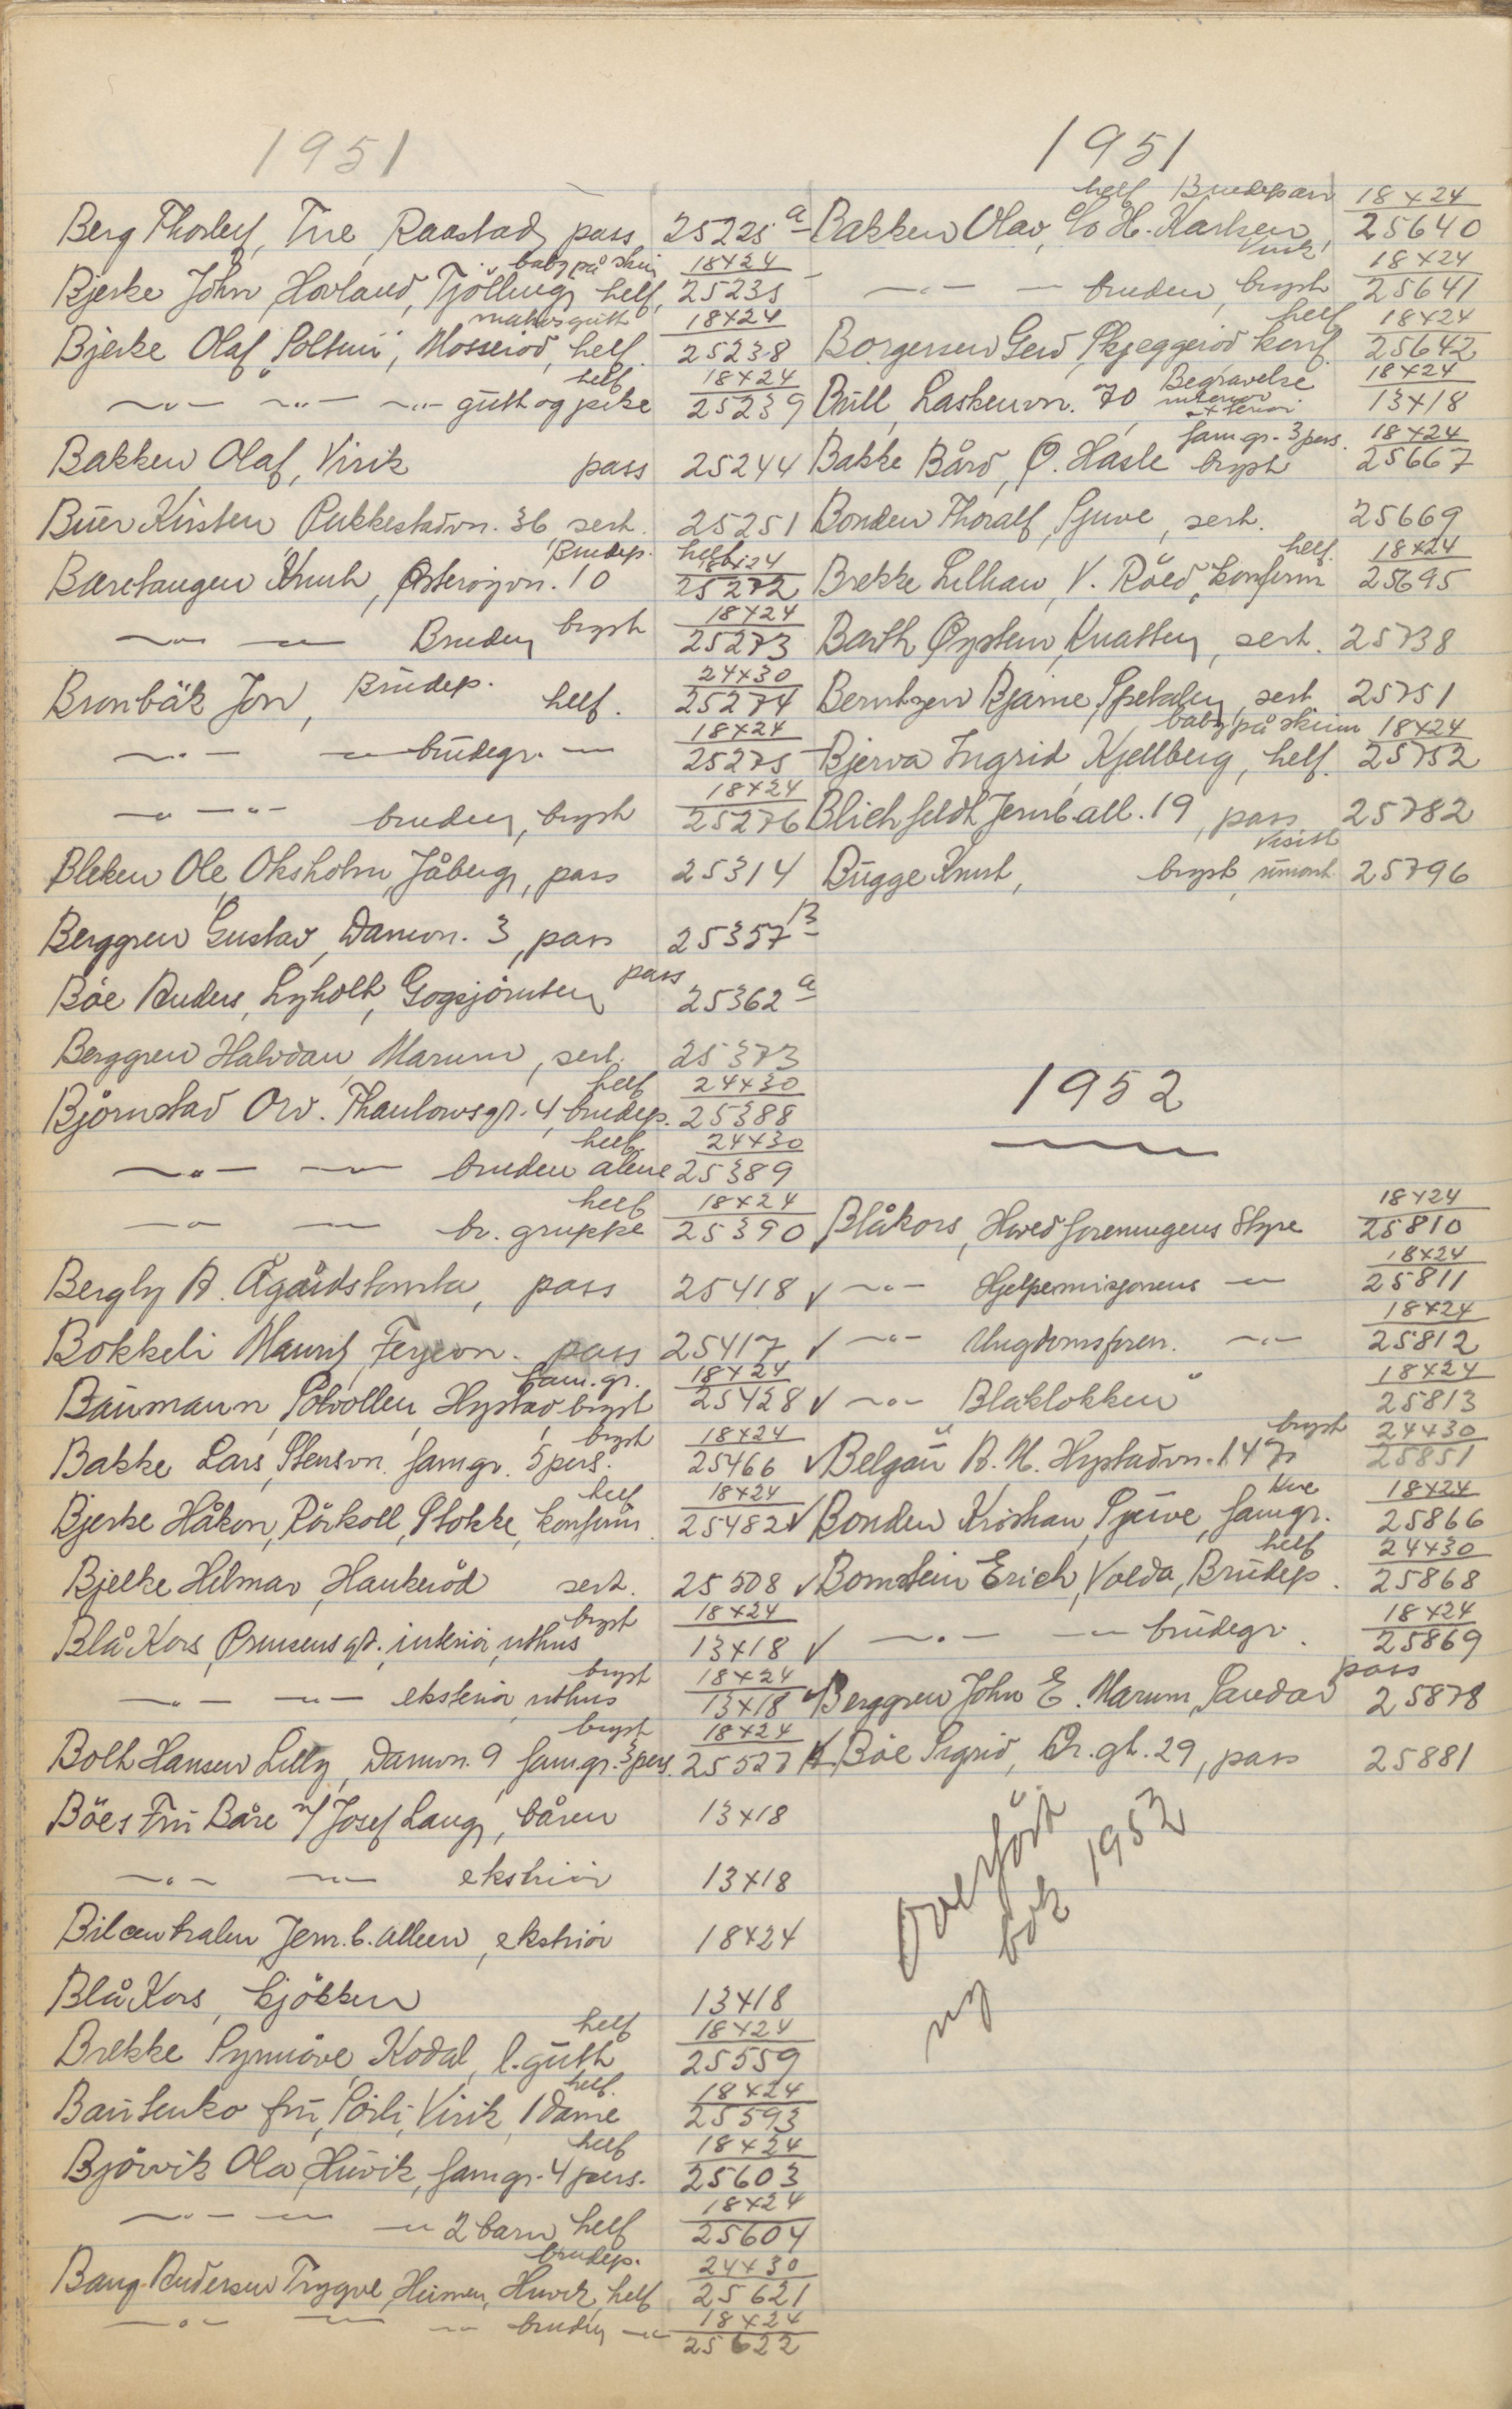 1951
Berg Thorleif, Tue, Raastad, pass 25225 a
baby på skin 18x24
Bjerke John, Hovland, Tjölling, helf. 25235
naken gutt 18x24
Bjerke Olaf, Soltun, Mosserød, helf. 25238
helf 18x24
—"— —"— —"— gutt og pike 25239
Bakken Olaf, Virik pass 25244
Buer Kirsten Pukkestadvn. 36, sert. 25251
Brudep. helf. 18x24
Barstangen Knut, Østerøyvn. 10 25272
18x24
—"— —"— Bruden bryst 25273
24x30
Bronbäk Jon, Brudep. helf. 25274
18x24
—"— —"— brudegr. —"— 25275
18x24
—"— —"— bruden, bryst 25276
Bleken Ole, Oksholm, Jåberg, pass 25314
Berggren Gustav, Damvn. 3, pass 25357 B
Bøe Anders, Lyholt, Gogsjørnsten pass 25362 a
Berggren Halvdan, Marum, sert. 25373
helf 24x30
Bjørnstad Ovr. Thaulowsgt. 4, brudep. 25388
helf. 24x30
—"— —"— bruden alene 25389
helf 18x24
—"— —"— br. gruppe 25390
Bergly A. Ågårdstomta, pass 25418
Bokkeli Maurits, Fergevn. pass 25417
fam. gr. 18x24
Baumann, Solvollen, Hystad bryst 25428
bryst 18x24
Bakke Lars, Stensvn. famgr. 5 pers. 25466
helf 18x24
Bjerke Håkon, Rørkoll, Stokke, konfirm 25482
Bjelke Hilmar, Haukerød sert. 25508
bryst 18x24
Blå Kors, Prinsensgt. interiør, uthus 13x18
bryst 18x24
—"— —"— eksteriør, uthus 13x18
bryst 18x24
Bolt Hansen Lilly, Damvn. 9 famgr. 3 pers. 25527
Böes Fru Båre v/ Josef Lang, båren 13x18
—"— —"— eksteriør 13x18
Bilcentralen Jern.b.alleen, eksteriør 18x24
Blå Kors, kjökken 13x18
helf 18x24
Brekke Synnöve, Kodal, l. gutt 25559
helf. 18x24
Bautenko fru, Sörli, Virik, 1 dame 25593
helf 18x24
Bjørvik Ola, Huvik, famgr. 4 pers. 25603
18x24
—"— —"— —"— 2 barn, helf 25604
brudep. 24x30
Bang-Andersen Trygve, Heimen, Huvik, helf 25621
18x24
—"— —"— —"— bruden —"— 25622
1951
helf Brudepar 18x24
Bakken Olav, c/o H. Karlsen, Virik, 25640
18x24
—"— — bruden, bryst 25641
helf 18x24
Borgersen Gerd, Skjeggerød konf. 25642
Begravelse 18x24
Bull, Laskenvn. 70 interiør og eksteriør 13x18
fam gr. 3 pers. 18x24
Bakke Bård, Ø. Hasle bryst 25667
Bonden Thoralf, Sjuve, sert. 25669
helf. 18x24
Brekke Lillian, V. Röed, konfirm 25695
Barth Øystein, Knatten, sert. 25738
Berntzen Bjarne, Spetalen, sert. 25751
baby på skinn 18x24
Bjerva Ingrid, Kjellberg, helf. 25752
Blichfeldt Jernb.all. 19, pass 25782
visitt
Bugge Knut, bryst, umont. 25796
1952
18x24
Blåkors, Hovedforeningens Styre 25810
18x24
✓ —"— Hjelpemisjonens —"— 25811
18x24
✓ —"— Ungdomsforen. —"— 25812
18x24
✓ —"— Blåklokken" 25813
bryst 24x30
✓ Belgau B. M. Hystadvn. 147 25851
kne 18x24
✓ Bonden Kristian, Sjuve, famgr. 25866
helf 24x30
✓ Bornstein Erich, Volda, Brudep. 25868
18x24
✓ —"— —"— brudegr. 25869
pass
✓ Berggren John E. Marum, Sandar 25878
Bøe Sigrid, Dr. gt. 29, pass 25881
Overført
ny bok 1952